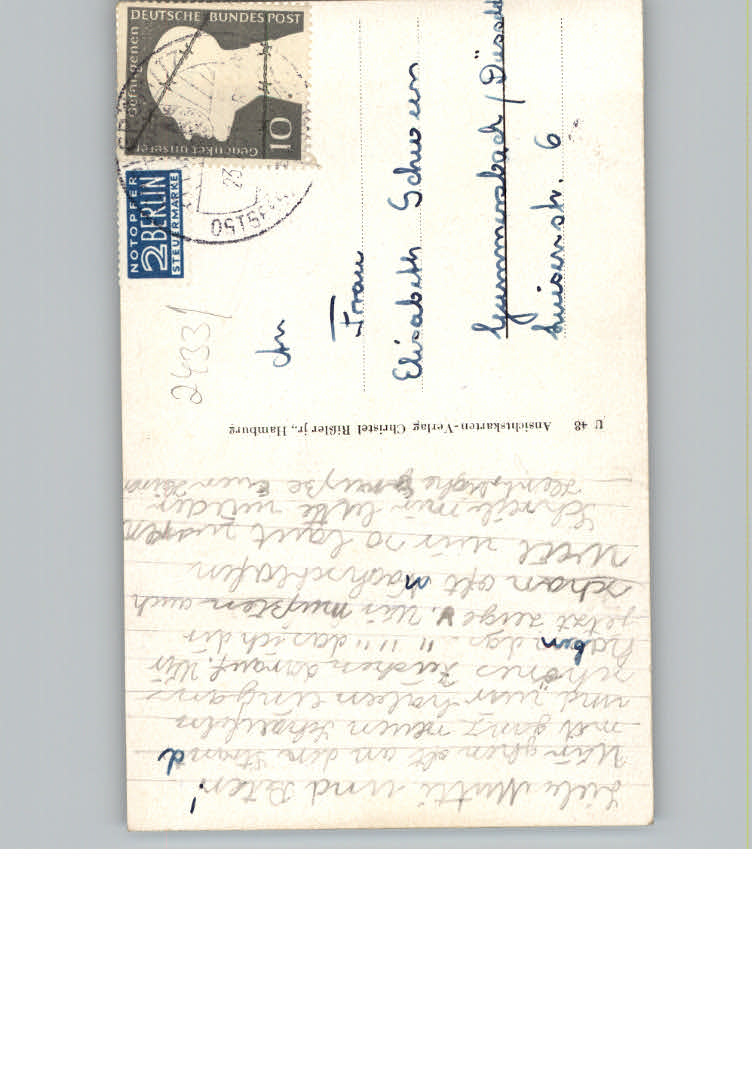 DEUTSCHE BUNDESPOST
Gedenket unserer Gefangenen
10
NOTOPFER
2 BERLIN
STEUERMARKE
23
2433/
An
Frau
Elisabeth Schwurm
Gummersbach / Düsseld
Luisenstr. 6
U 48 Ansichtskarten-Verlag Christel Rißler jr., Hamburg
Liebe Mutti und Peter!
Wir ghen oft an den Strand
mit ganz neuen Schaufeln
und wir haben ein ganz
schönes Zeichen darauf. Wir
haben das " " das ich dir
jetzt zeige V. Wir mußten auch
schon oft Nachschlafen
Weil wir so laut waren
Schreib mir bitte wieder
Herzliche Grüße Euer